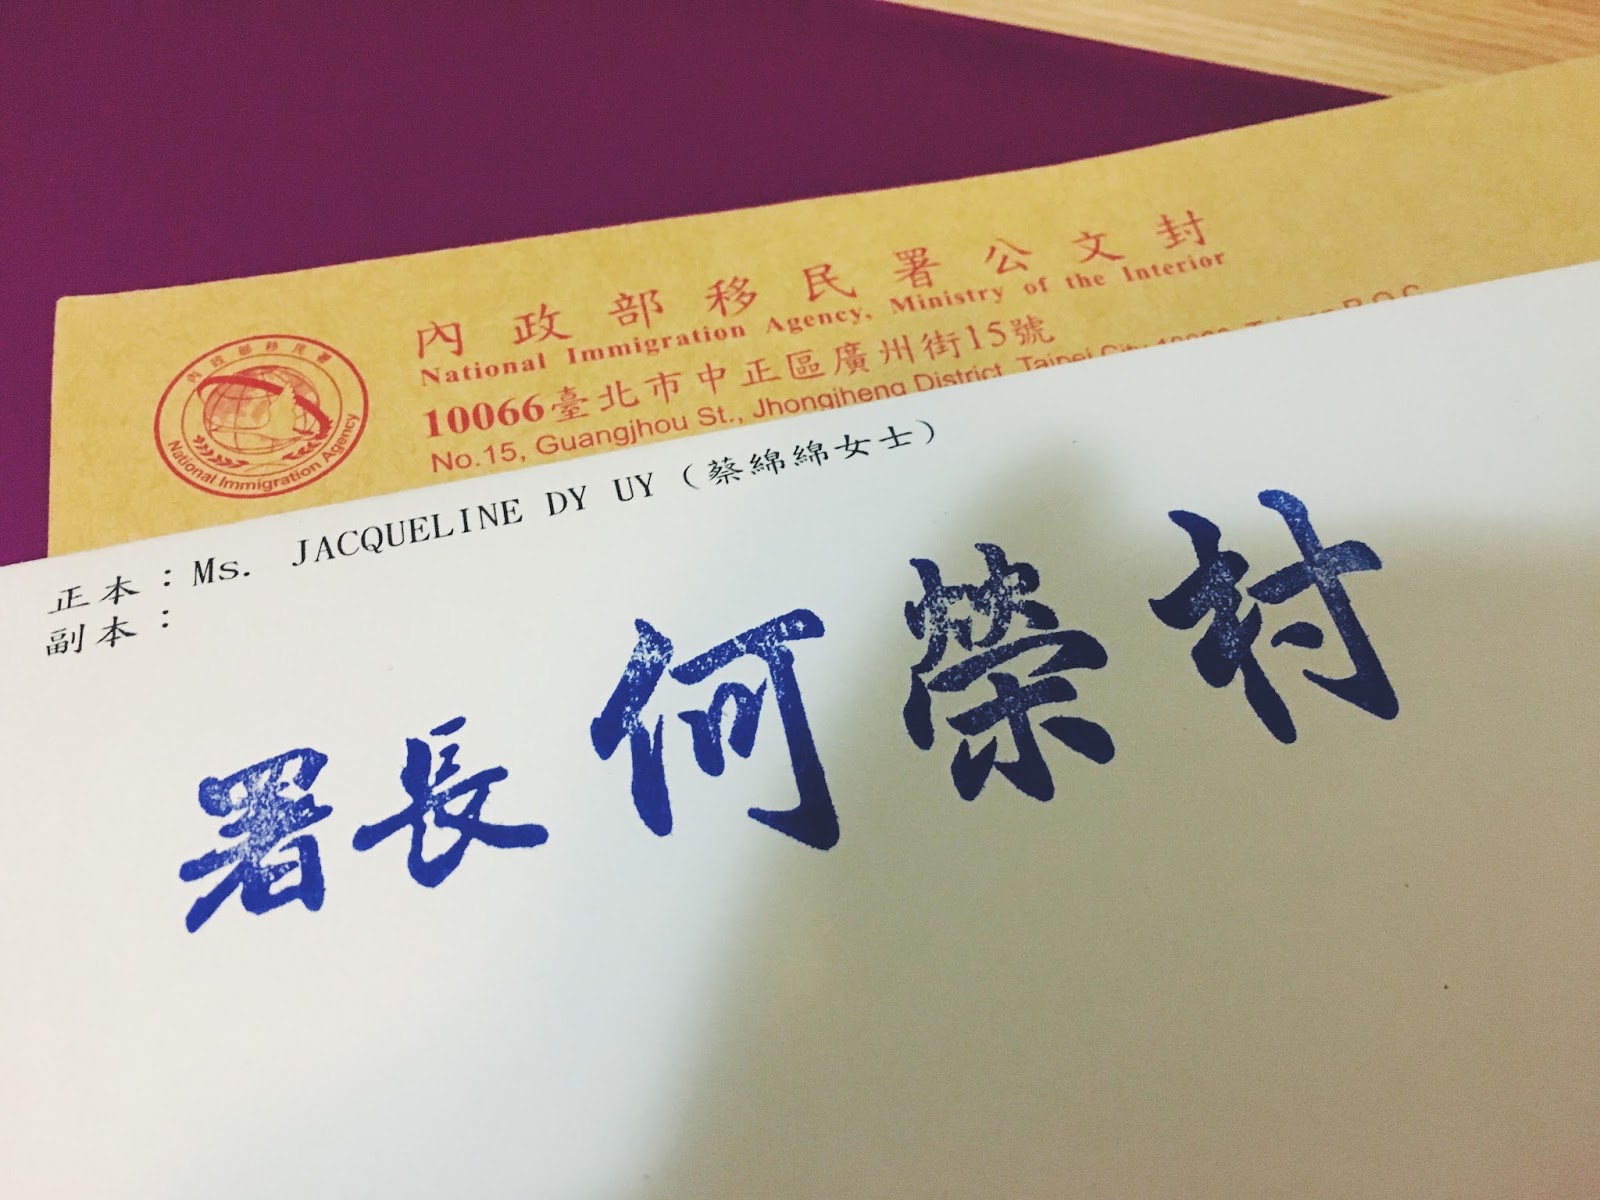 內政部移民署公文封
National Immigration Agency, Ministry of the Interior
10066臺北市中正區廣州街15號
No.15, Guangjhou St., Jhongjheng District, Taipei City
內政部移民署
National Immigration Agency
正本：Ms. JACQUELINE DY UY（蔡綿綿女士）
副本：
署長何榮村